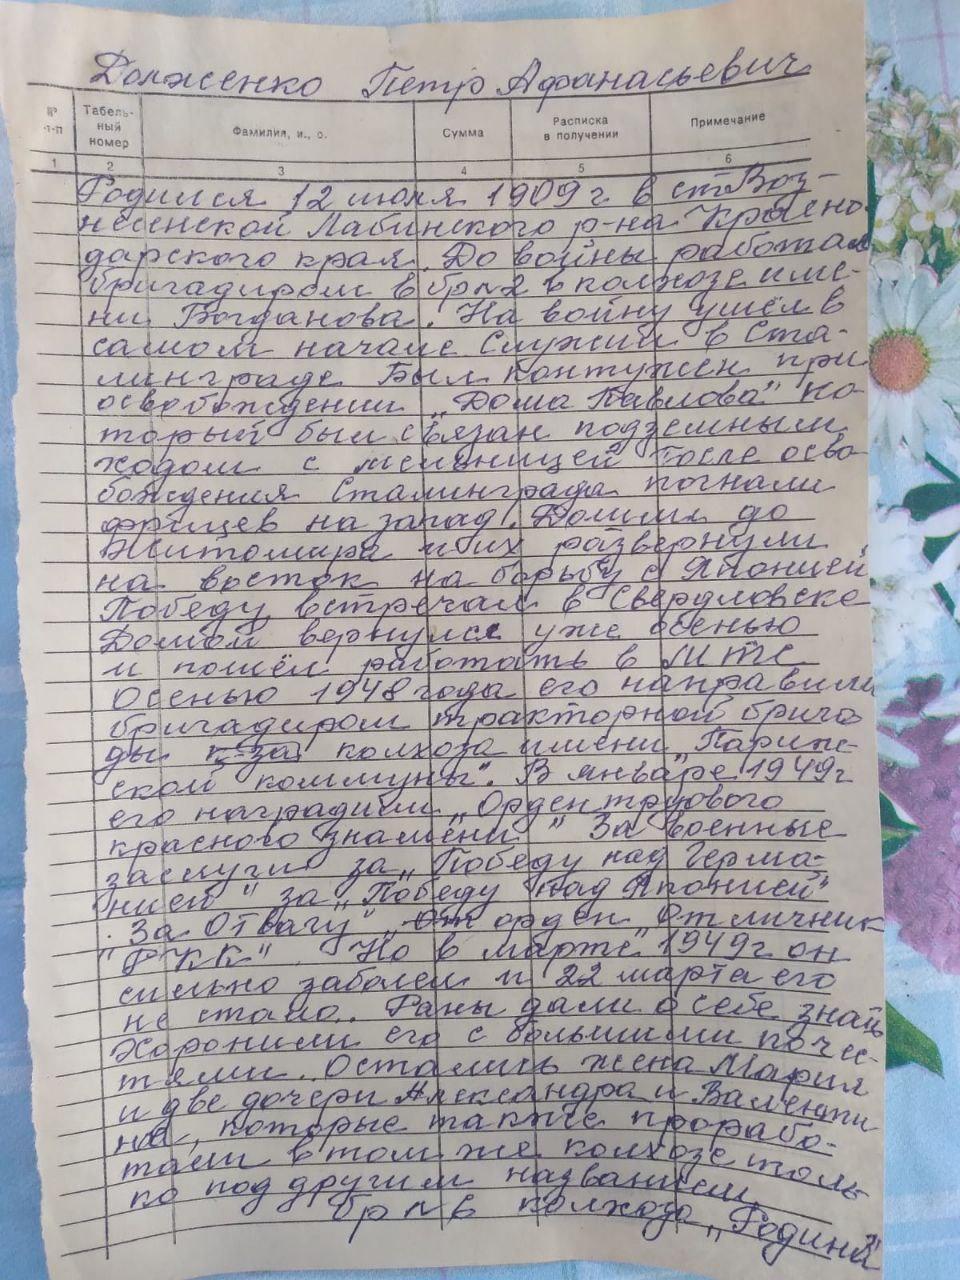 Долженко Петр Афанасьевич
№ п-п Табель-ный номер Фамилия, и., о. Сумма Расписка в получении Примечание
1 2 3 4 5 6
Родился 12 июля 1909 г в ст Воз-
несенской Лабинского р-на Красно
дарского края. До войны работал
бригадиром в бр №2 в колхозе име-
ни Богданова. На войну ушёл в
самом начале Служил в Ста-
линграде Был контужен при
освобождении „Дома Павлова" ко
торый был связан подземным
ходом с мельницей После осво
бождения Сталинграда погнали
фрицев на запад. Дошли до
Житомира и их развернули
на восток на борьбу с Японией
Победу встречал в Свердловске
Домой вернулся уже осенью
и пошёл работать в МТС
Осенью 1948 года его направили
бригадиром тракторной брига
ды к-за колхоза имени „Париж-
ской коммуны". В январе 1949 г
его наградили „Орден трудового
красного знамени" За военные
заслуги за „Победу над Герма-
нией" за „Победу над Японией"
За Отвагу" От орден „Отличник
"РККА". Но в марте 1949 г он
сильно заболел и 22 марта его
не стало. Раны дали о себе знать
Хоронили его с большими почес-
тями. Остались жена Мария
и две дочери Александра и Валенти
на, которые также прорабо-
тали в том же колхозе толь
ко под другим названием
бр №6 колхоза „Родина"